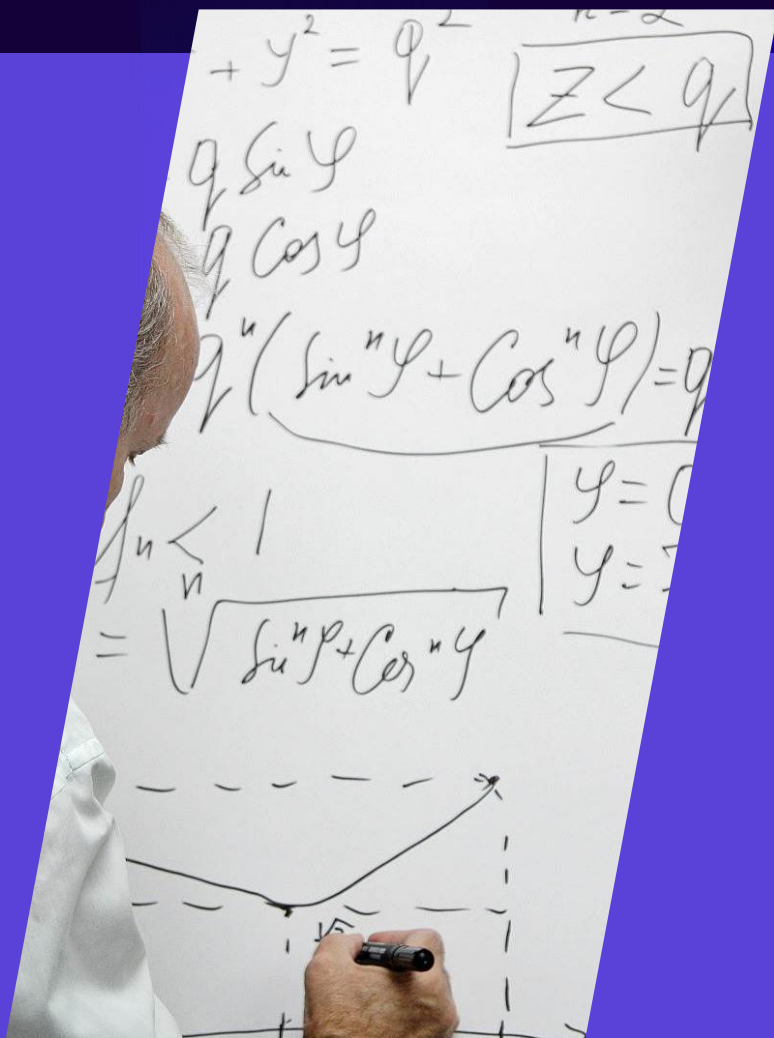 + y² = q²
z < q
q Sin φ
q Cos φ
qⁿ( Sinⁿφ + Cosⁿφ ) = q
fₙ < 1
φ =
φ =
= ⁿ√ Sinⁿφ + Cosⁿφ